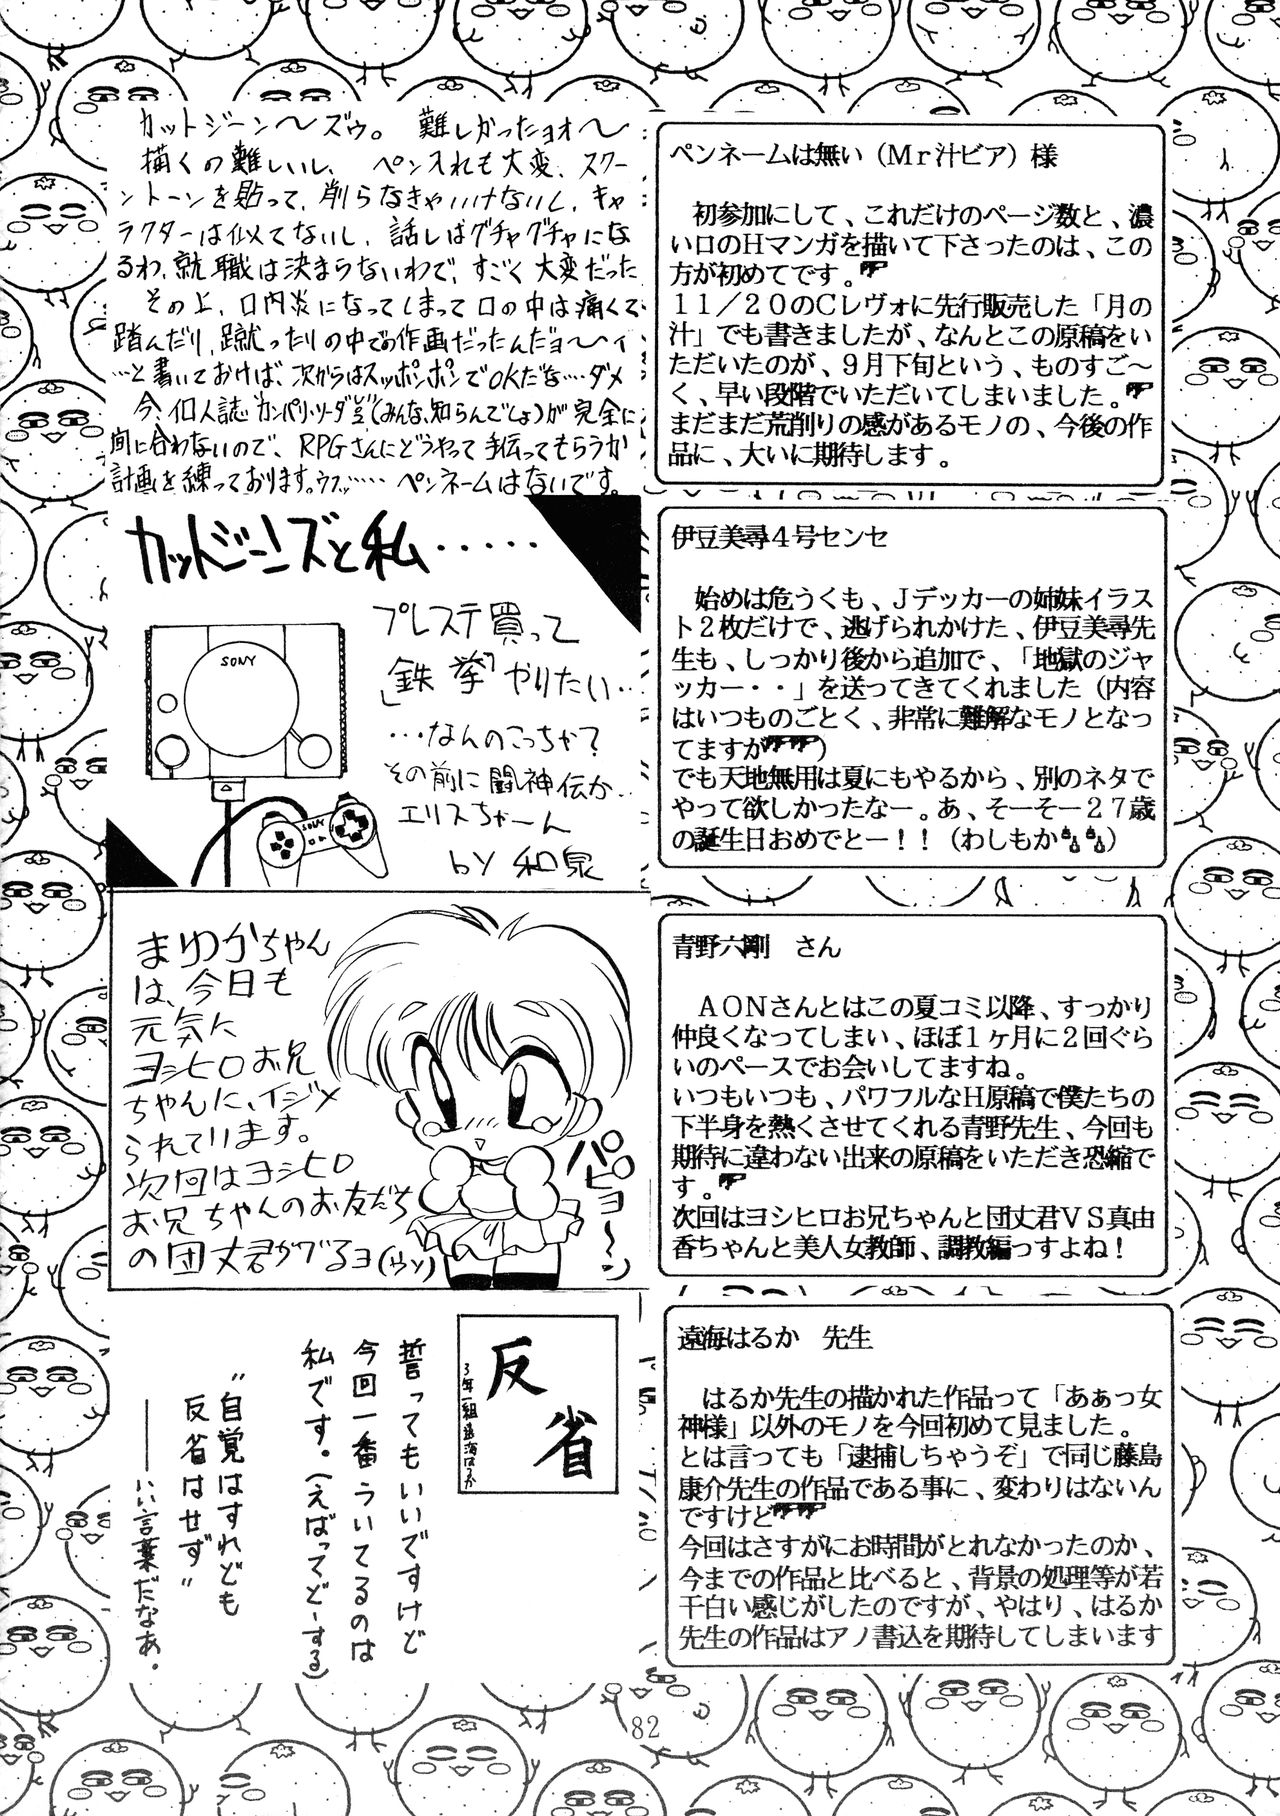 カットジーン〜ズゥ。 難しかったョオ〜
描くの難しいし、ペン入れも大変、スクー
ントーンを貼って、削らなきゃいけないし、キャ
ラクターは似てないし、話しはグチャグチャにな
るわ、就職は決まらないわで、すごく大変だった
その上、口内炎になってしまって口の中は痛くて
踏んだり、蹴ったりの中での作画だったんだョ〜ィ
…と書いておけば、次からはスッポンポンでOKだな‥‥ダメ
今、個人誌"カンパリ・ソーダ"(みんな、知らんでしょ)が完全に
間に合わないので、RPGさんにどうやって手伝ってもらうか
計画を練っております。ウフッ‥‥‥ ペンネームはないです。
ペンネームは無い(Mr汁ビア)様
初参加にして、これだけのページ数と、濃
い口のHマンガを描いて下さったのは、この
方が初めてです。
11/20のCレヴォに先行販売した「月の
汁」でも書きましたが、なんとこの原稿をい
ただいたのが、9月下旬という、ものすご〜
く、早い段階でいただいてしまいました。
まだまだ荒削りの感があるモノの、今後の作
品に、大いに期待します。
カットジーンズと私・・・・・
プレステ買って
「鉄拳」やりたい‥
・・・なんのこっちゃ?
その前に闘神伝か‥
エリスちゃーん
by 和泉
SONY
SONY
伊豆美尋4号センセ
始めは危うくも、Jデッカーの姉妹イラス
ト2枚だけで、逃げられかけた、伊豆美尋先
生も、しっかり後から追加で、「地獄のジャ
ッカー・・」を送ってきてくれました(内容
はいつものごとく、非常に難解なモノとなっ
てますが)
でも天地無用は夏にもやるから、別のネタで
やって欲しかったなー。あ、そーそー27歳
の誕生日おめでとー!!(わしもか)
まゆかちゃん
は、今日も
元気に
ヨシヒロお兄
ちゃんに、イジメ
られています。
次回はヨシヒロ
お兄ちゃんのお友だち
の団丈君がでるヨ(ウソ)
パピョ〜〜ン
青野六剛 さん
AONさんとはこの夏コミ以降、すっかり
仲良くなってしまい、ほぼ1ヶ月に2回ぐら
いのペースでお会いしてますね。
いつもいつも、パワフルなH原稿で僕たちの
下半身を熱くさせてくれる青野先生、今回も
期待に違わない出来の原稿をいただき恐縮で
す。
次回はヨシヒロお兄ちゃんと団丈君VS真由
香ちゃんと美人女教師、調教編っすよね!
反省
3年一組 遠海はるか
誓ってもいいですけど
今回一番ういてるのは
私です。(えばってどーする)
"自覚はすれども
反省はせず"
――いい言葉だなあ.
遠海はるか 先生
はるか先生の描かれた作品って「あぁっ女
神様」以外のモノを今回初めて見ました。
とは言っても「逮捕しちゃうぞ」で同じ藤島
康介先生の作品である事に、変わりはないん
ですけど
今回はさすがにお時間がとれなかったのか、
今までの作品と比べると、背景の処理等が若
干白い感じがしたのですが、やはり、はるか
先生の作品はアノ書込を期待してしまいます
82